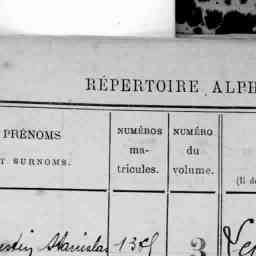 RÉPERTOIRE ALPH
PRÉNOMS
T SURNOMS.
NUMÉROS
ma-
tricules.
NUMÉRO
du
volume.
(Il d
Stanislas
3